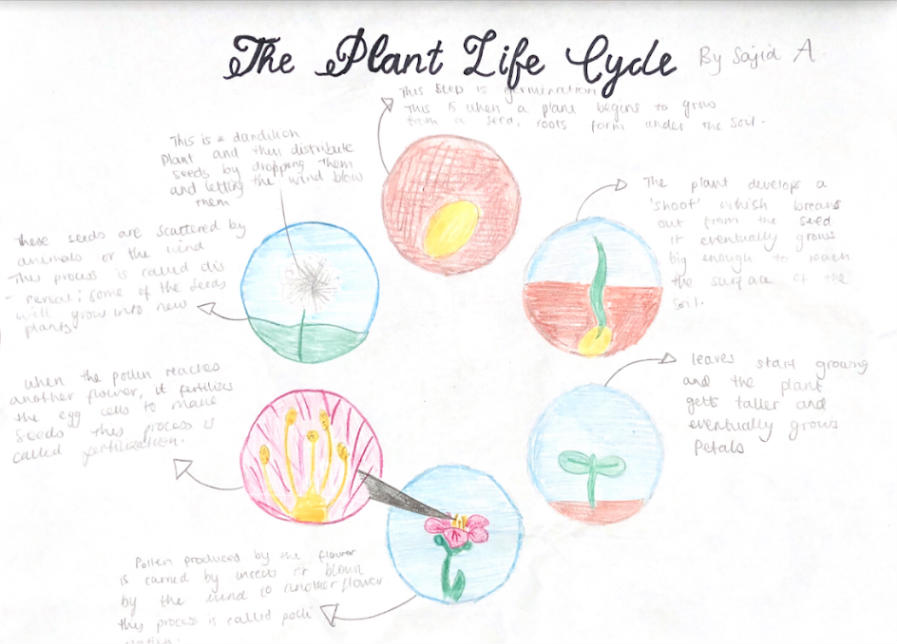 The Plant Life Cycle By Sajid A
This step is germination
This is when a plant begins to grow
from a seed, roots form under the soil.
This is a dandilion
plant and they distribute
seeds by dropping them
and letting the wind blow
them
The plant develops a
'shoot' which breaks
out from the seed
it eventually grows
big enough to reach
the surface of the
soil.
These seeds are scattered by
animals or the wind
This process is called dis
- persal; some of the seeds
will grow into new
plants
leaves start growing
and the plant
gets taller and
eventually grows
Petals
when the pollen reaches
another flower, it fertilizes
the egg cells to make
seeds this process is
called fertilization.
Pollen produced by the flower
is carried by insects or blown
by the wind to another flower
this process is called polli
nation.